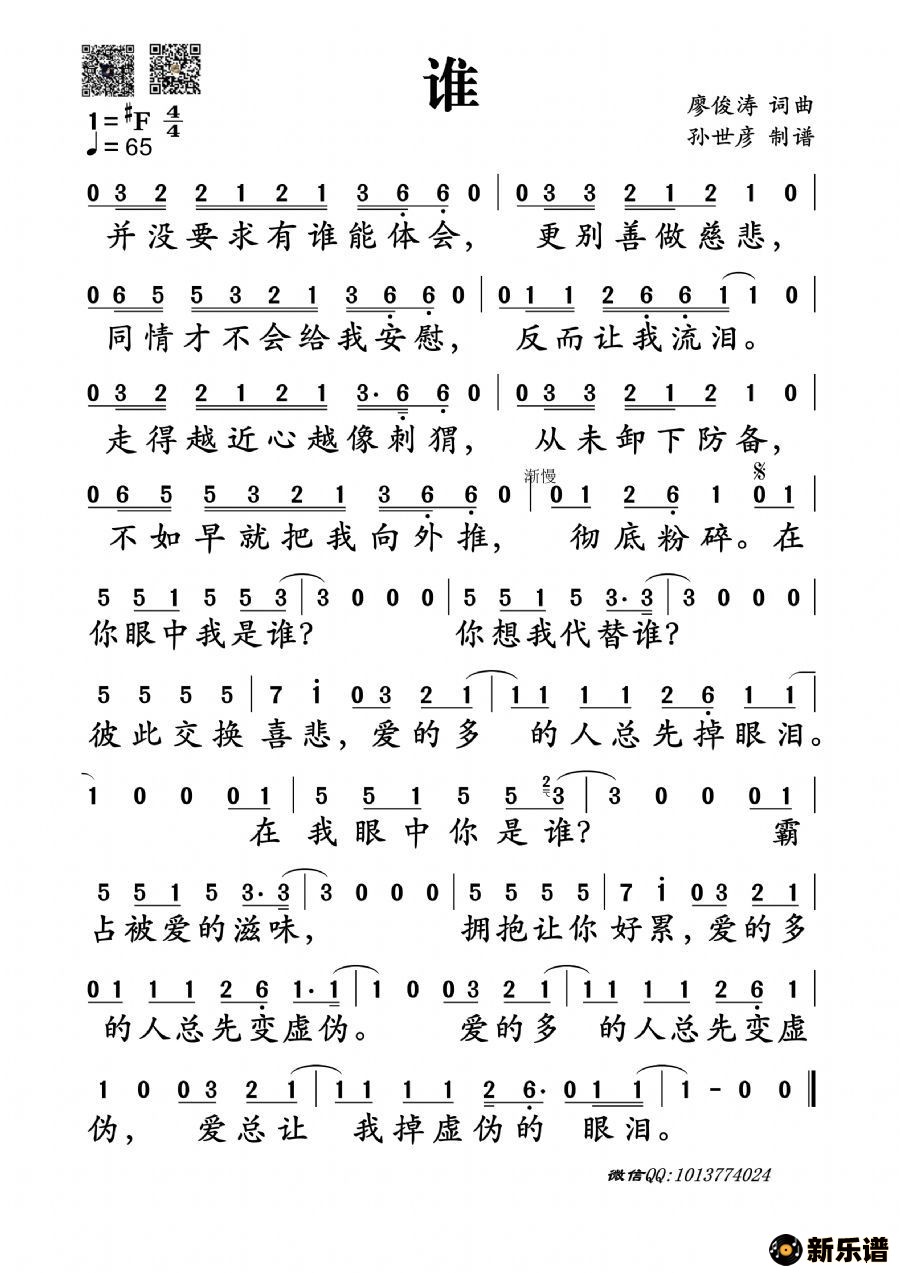 谁
1=#F 4/4
♩=65
廖俊涛 词曲
孙世彦 制谱
0 3 2 2 1 2 1 3 6 6 0 | 0 3 3 2 1 2 1 0 |
并没要求有谁能体会， 更别善做慈悲，
0 6 5 5 3 2 1 3 6 6 0 | 0 1 1 2 6 6 1 1 0 |
同情才不会给我安慰， 反而让我流泪。
0 3 2 2 1 2 1 3· 6 6 0 | 0 3 3 2 1 2 1 0 |
走得越近心越像刺猬， 从未卸下防备，
渐慢
0 6 5 5 3 2 1 3 6 6 0 | 0 1 2 6 1 0 1 |
不如早就把我向外推， 彻底粉碎。在
5 5 1 5 5 3 | 3 0 0 0 | 5 5 1 5 3· 3 | 3 0 0 0 |
你眼中我是谁? 你想我代替谁?
5 5 5 5 | 7 i 0 3 2 1 | 1 1 1 1 2 6 1 1 |
彼此交换喜悲，爱的多 的人总先掉眼泪。
1 0 0 0 1 | 5 5 1 5 5 2 3 | 3 0 0 0 1 |
在我眼中你是谁? 霸
5 5 1 5 3· 3 | 3 0 0 0 | 5 5 5 5 | 7 i 0 3 2 1 |
占被爱的滋味， 拥抱让你好累，爱的多
0 1 1 1 2 6 1· 1 | 1 0 0 3 2 1 | 1 1 1 1 2 6 1 |
的人总先变虚伪。 爱的多 的人总先变虚
1 0 0 3 2 1 | 1 1 1 1 2 6· 0 1 1 | 1 - 0 0
伪， 爱总让 我掉虚伪的 眼泪。
微信QQ:1013774024
新乐谱